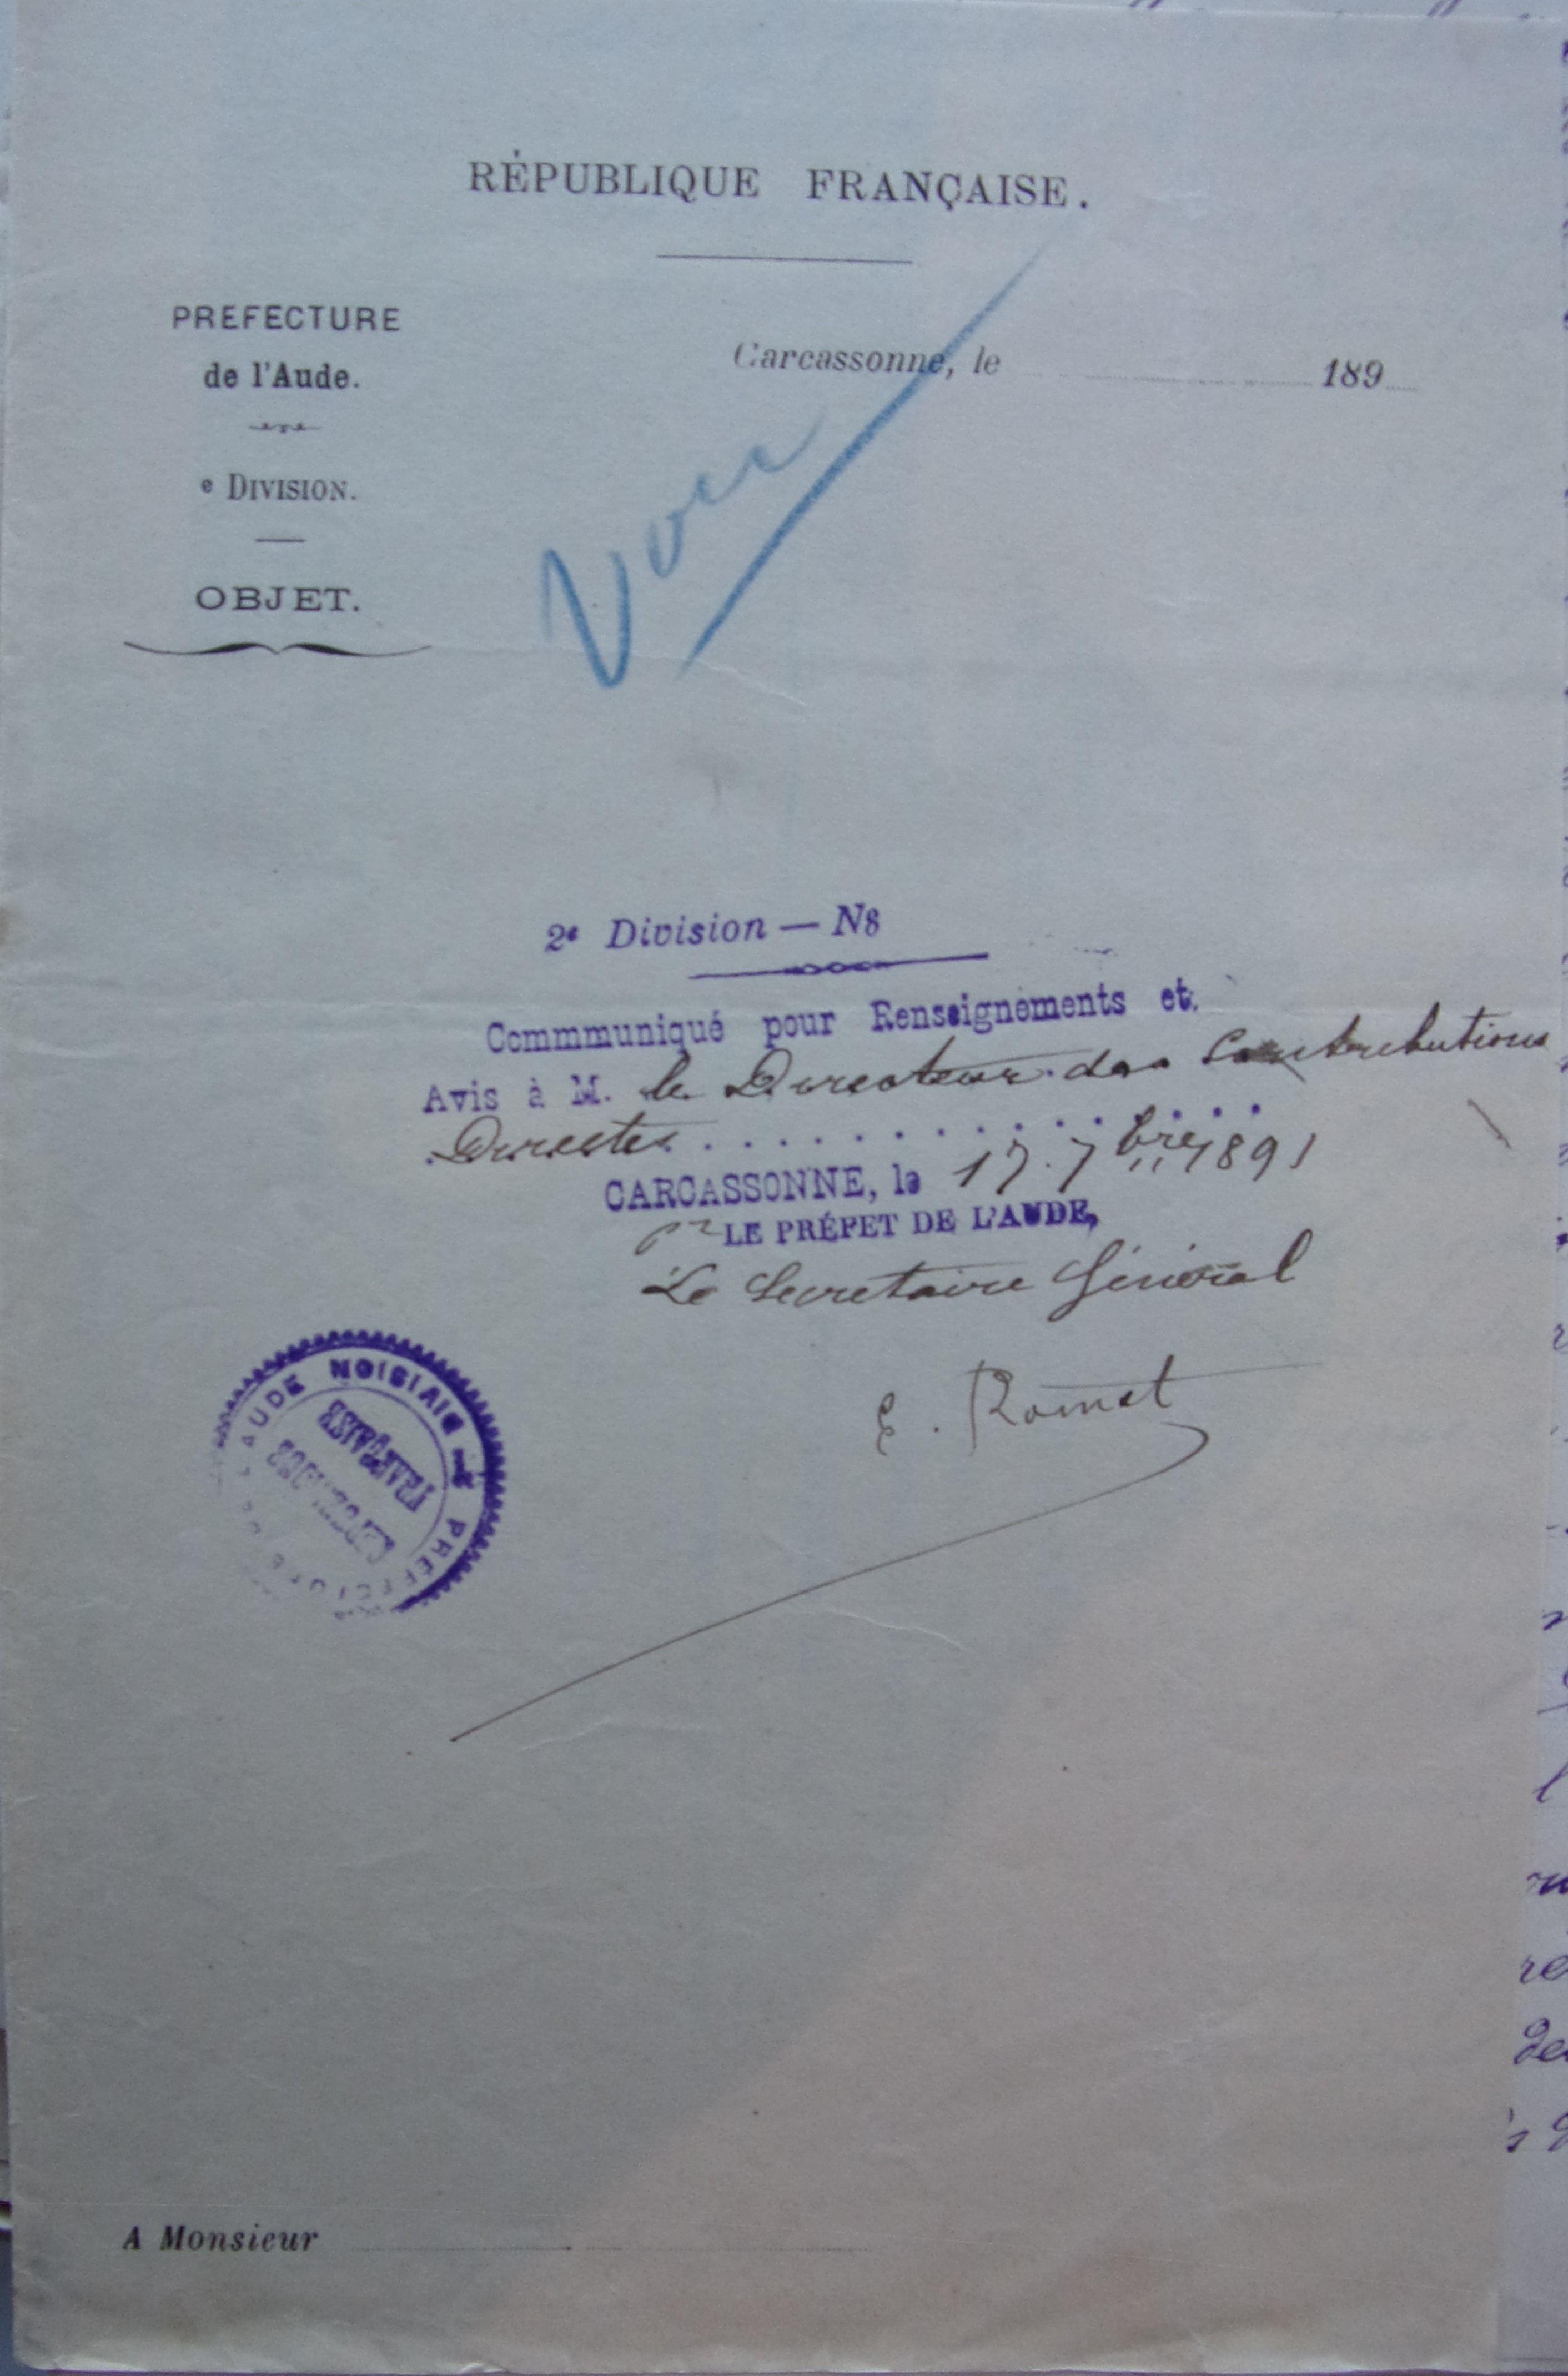 RÉPUBLIQUE FRANÇAISE.
PREFECTURE
de l'Aude.
Carcassonne, le 189
e DIVISION.
OBJET.
Voir
2e Division — N8
Commmuniqué pour Renseignements et
Avis à M. le Directeur des Contributions
Directes
CARCASSONNE, le 17. 7bre 1891
pr LE PRÉFET DE L'AUDE,
Le Secrétaire Général
PRÉFECTURE DE L'AUDE DIVISION
A Monsieur